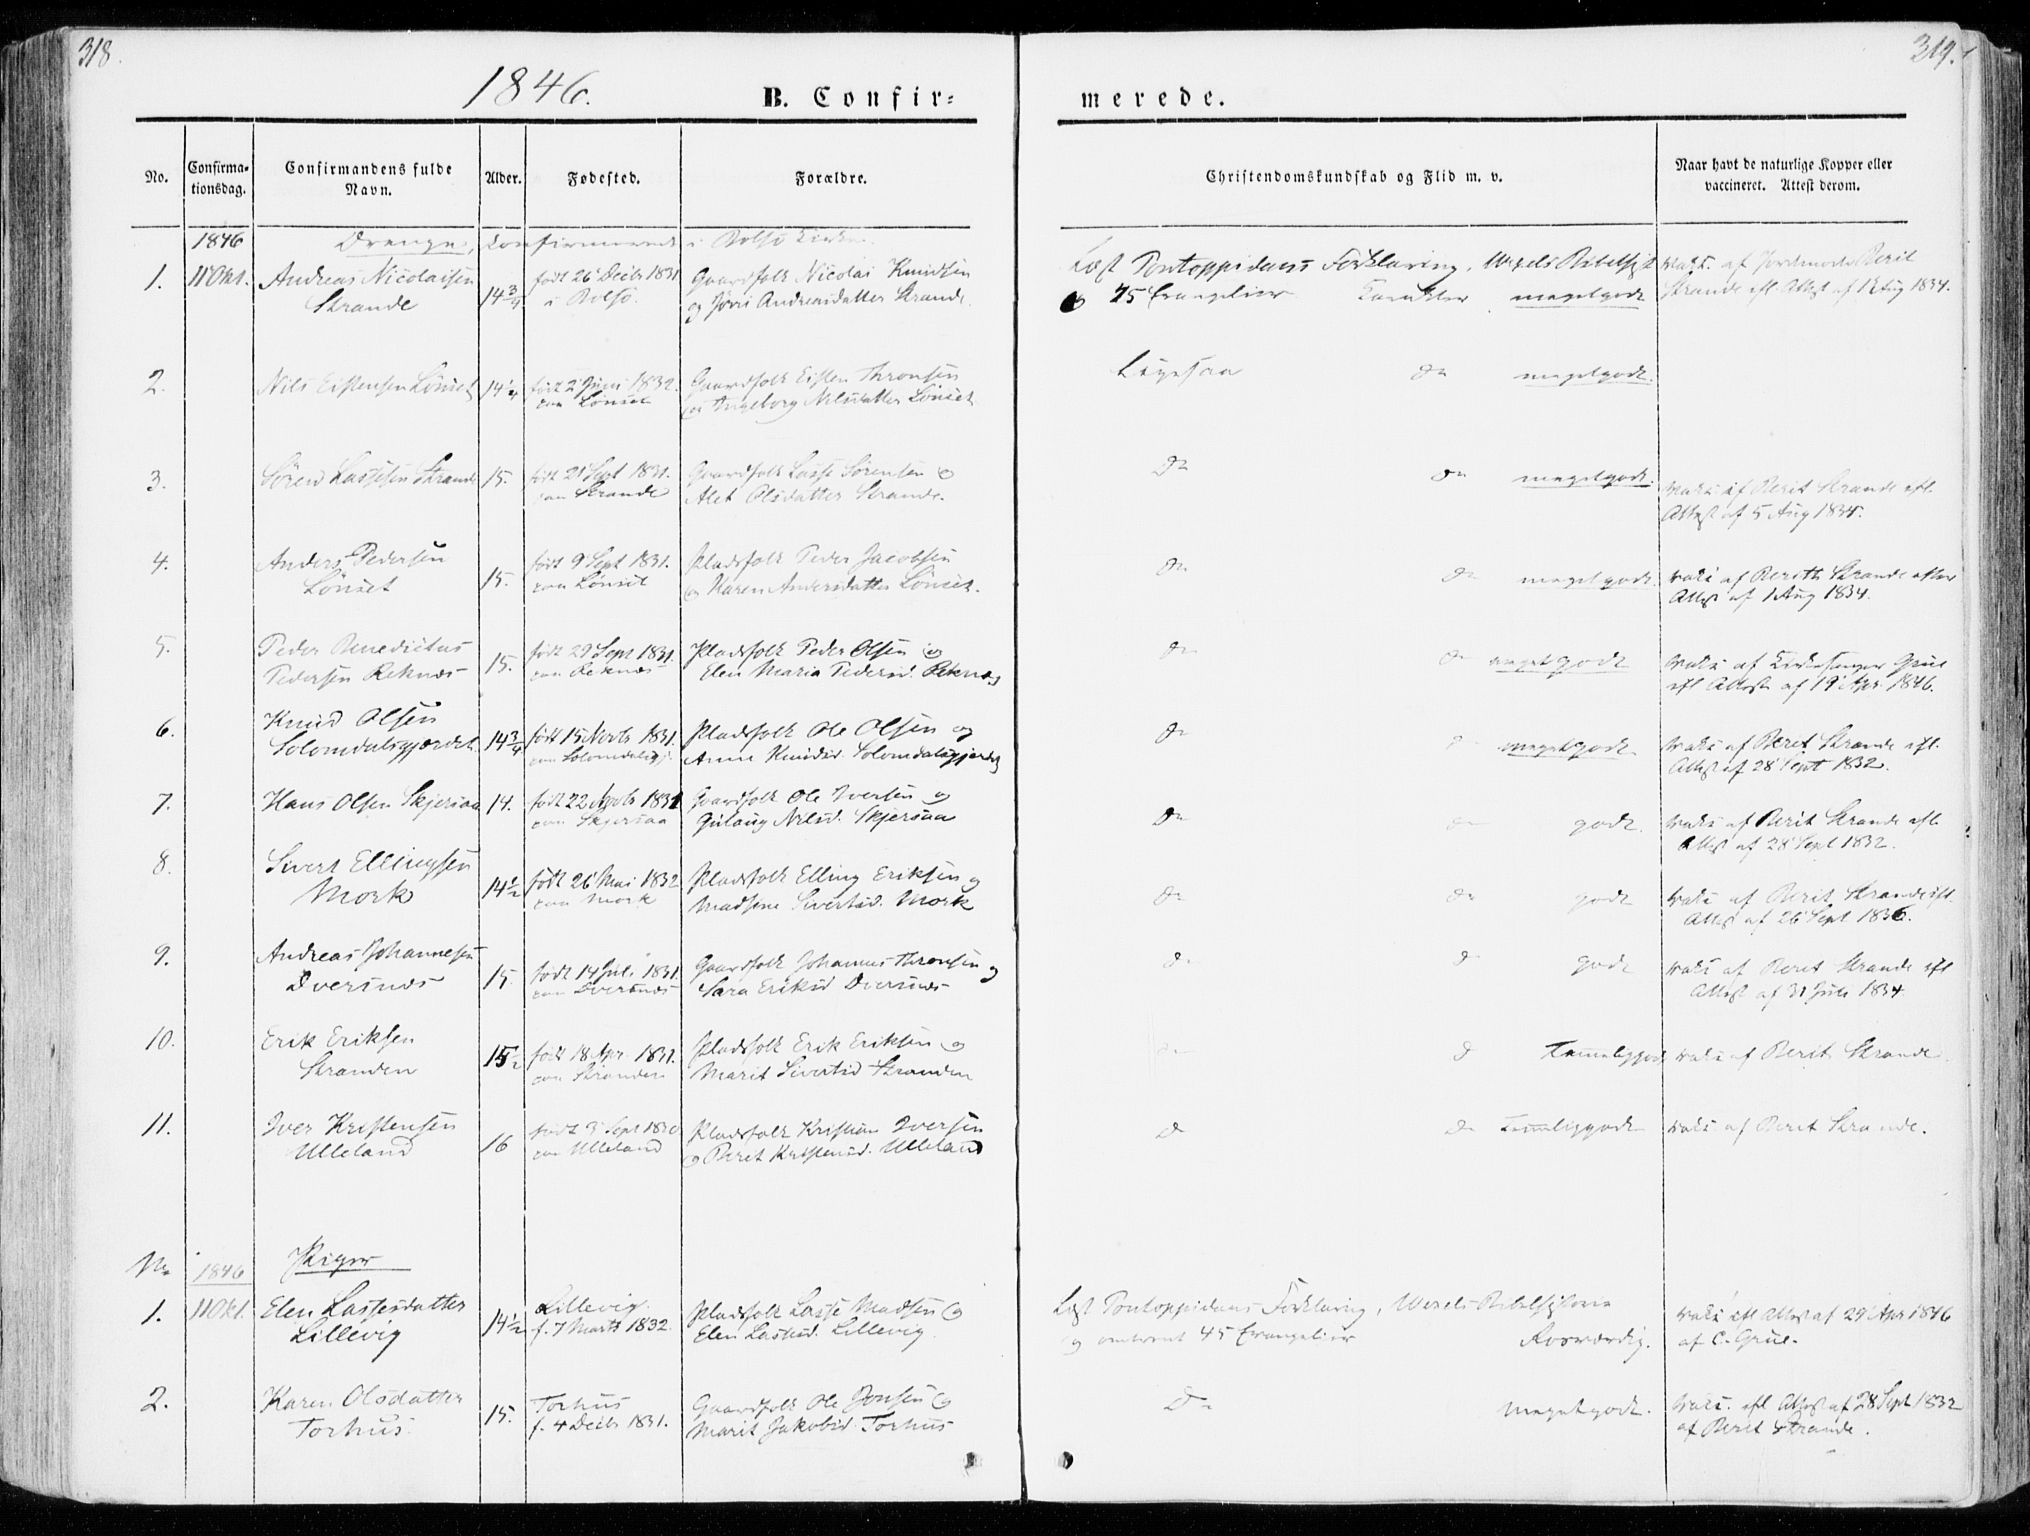 318.
319.
1846.
B. Confir=
merede.
No.
Confirma-
tionsdag.
Confirmandens fulde
Navn.
Alder.
Fødested.
Forældre.
Christendomskundskab og Flid m. v.
Naar havt de naturlige Kopper eller
vaccineret. Attest derom.
1846 Drenge, Confirmerede i Bolsø
1. 11 Okt. Andreas Nicolaisen 14 3/4 født 26 Decbr 1831 Gaardfolk Nicolai Knudsen Læst Pontoppidans Forklaring, Wexels Bibelhist vaks. af Jordmoder Berit
Strande i Bolsø. og Andreasdatter Strande. 45 Evangelier Karakter meget godt Strande efl. Attest af 1834.
2. Nils Eistensen Lönset 14 1/4 født 2 Juni 1832. Gaardfolk Eisten Thronsen Ligesaa Do meget godt.
paa Lönset og Ingeborg Nilsdatter Lönset
3. Sören Lassesen Strande 15. født 21 Sept 1831. Gaardfolk Lasse Sörensen og Do Do meget godt. vaks af Berit Strande efl.
paa Strande Alet Olsdatter Strande. Attest af 5 Aug
4. Anders Pedersen 15. født 9 Sept 1831. Pladsfolk Peder Jacobsen Do Do meget godt. vaks af Berith Strande efter
Lönset paa Lönset og Karen Andersdatter Lönset. Attest af 1 Aug 1834.
5. Peder Benedictus 15. født 29 Sept 1831. Pladsfolk Peder Olsen og Do Do meget godt vaks af Kirkesanger Grüe
Pedersen Reknæs paa Reknæs Elen Maria Pedersd. Reknæs efl Attest af 19 Apr. 1846.
6. Knud Olsen 14 3/4 født 15 Novbr 1831. Pladsfolk Ole Olsen og Do meget godt. vaks af Beret Strande efl.
Solomdalsgjærdet paa Solomdalsgj. Anne Knudsd. Solomdalsgjerdet Attest af 28 Sept 1832.
7. Hans Olsen Skjersaa 14. født 22 Gaardfolk Ole Iversen og Do Do godt. vaks af Berit Strande efl.
paa Skjersaa Gulaug Nilsd. Skjersaa Attest af 28 Sept 1832.
8. Sivert Ellingsen 14 1/2 født 26 Mai 1832 Pladsfolk Elling Eriksen og Do Do godt vaks af Berit Strande efl.
Mork paa Mork Madsine Sivertsd. Mork Attest af 26 Sept 1836.
9. Andreas Johannesen 15 født 14 Juli 1831. Gaardfolk Johannes Thronsen og Do D godt vaks af Beret Strande efl
Dversnæs paa Dversnæs Sara Eriksd Dversnæs Attest af 31 Juli 1834
10. Erik Eriksen 15 1/2 født 18 Apr. 1831. Pladsfolk Erik Eriksen og Do D Temmeliggodt vaks af Berit Strande.
Stranden paa Stranden Marit Sivertsd Stranden
11. Iver Kristensen 16 født 3 Sept 1830 Pladsfolk Kristian Iversen D Do Temmeliggodt vaks af Berit Strande.
Ulleland paa Ulleland og Beret Kristensd. Ulleland
No 1846 Piger
1. 11 Okt. Elen Lassesdatter 14 1/2 Lillevig. Pladsfolk Lasse Madsen og Læst Pontoppidans Forklaring, Wexels Bibelhistorie vaks efl Attest af 29 Apr 1846
Lillevig f. 7 Marts 1832. Elen Lassesd. Lillevig. og omtrent 45 Evangelier Rosværdig. af C. Grüe.
2. Karen Olsdatter 15. Torhus Gaardfolk Ole Jonsen og Do meget godt. vaks. efl Attest af 28 Sept 1832
Torhus. f. 4 Decbr 1831. Marit Jakobsd Torhus af Beret Strande.